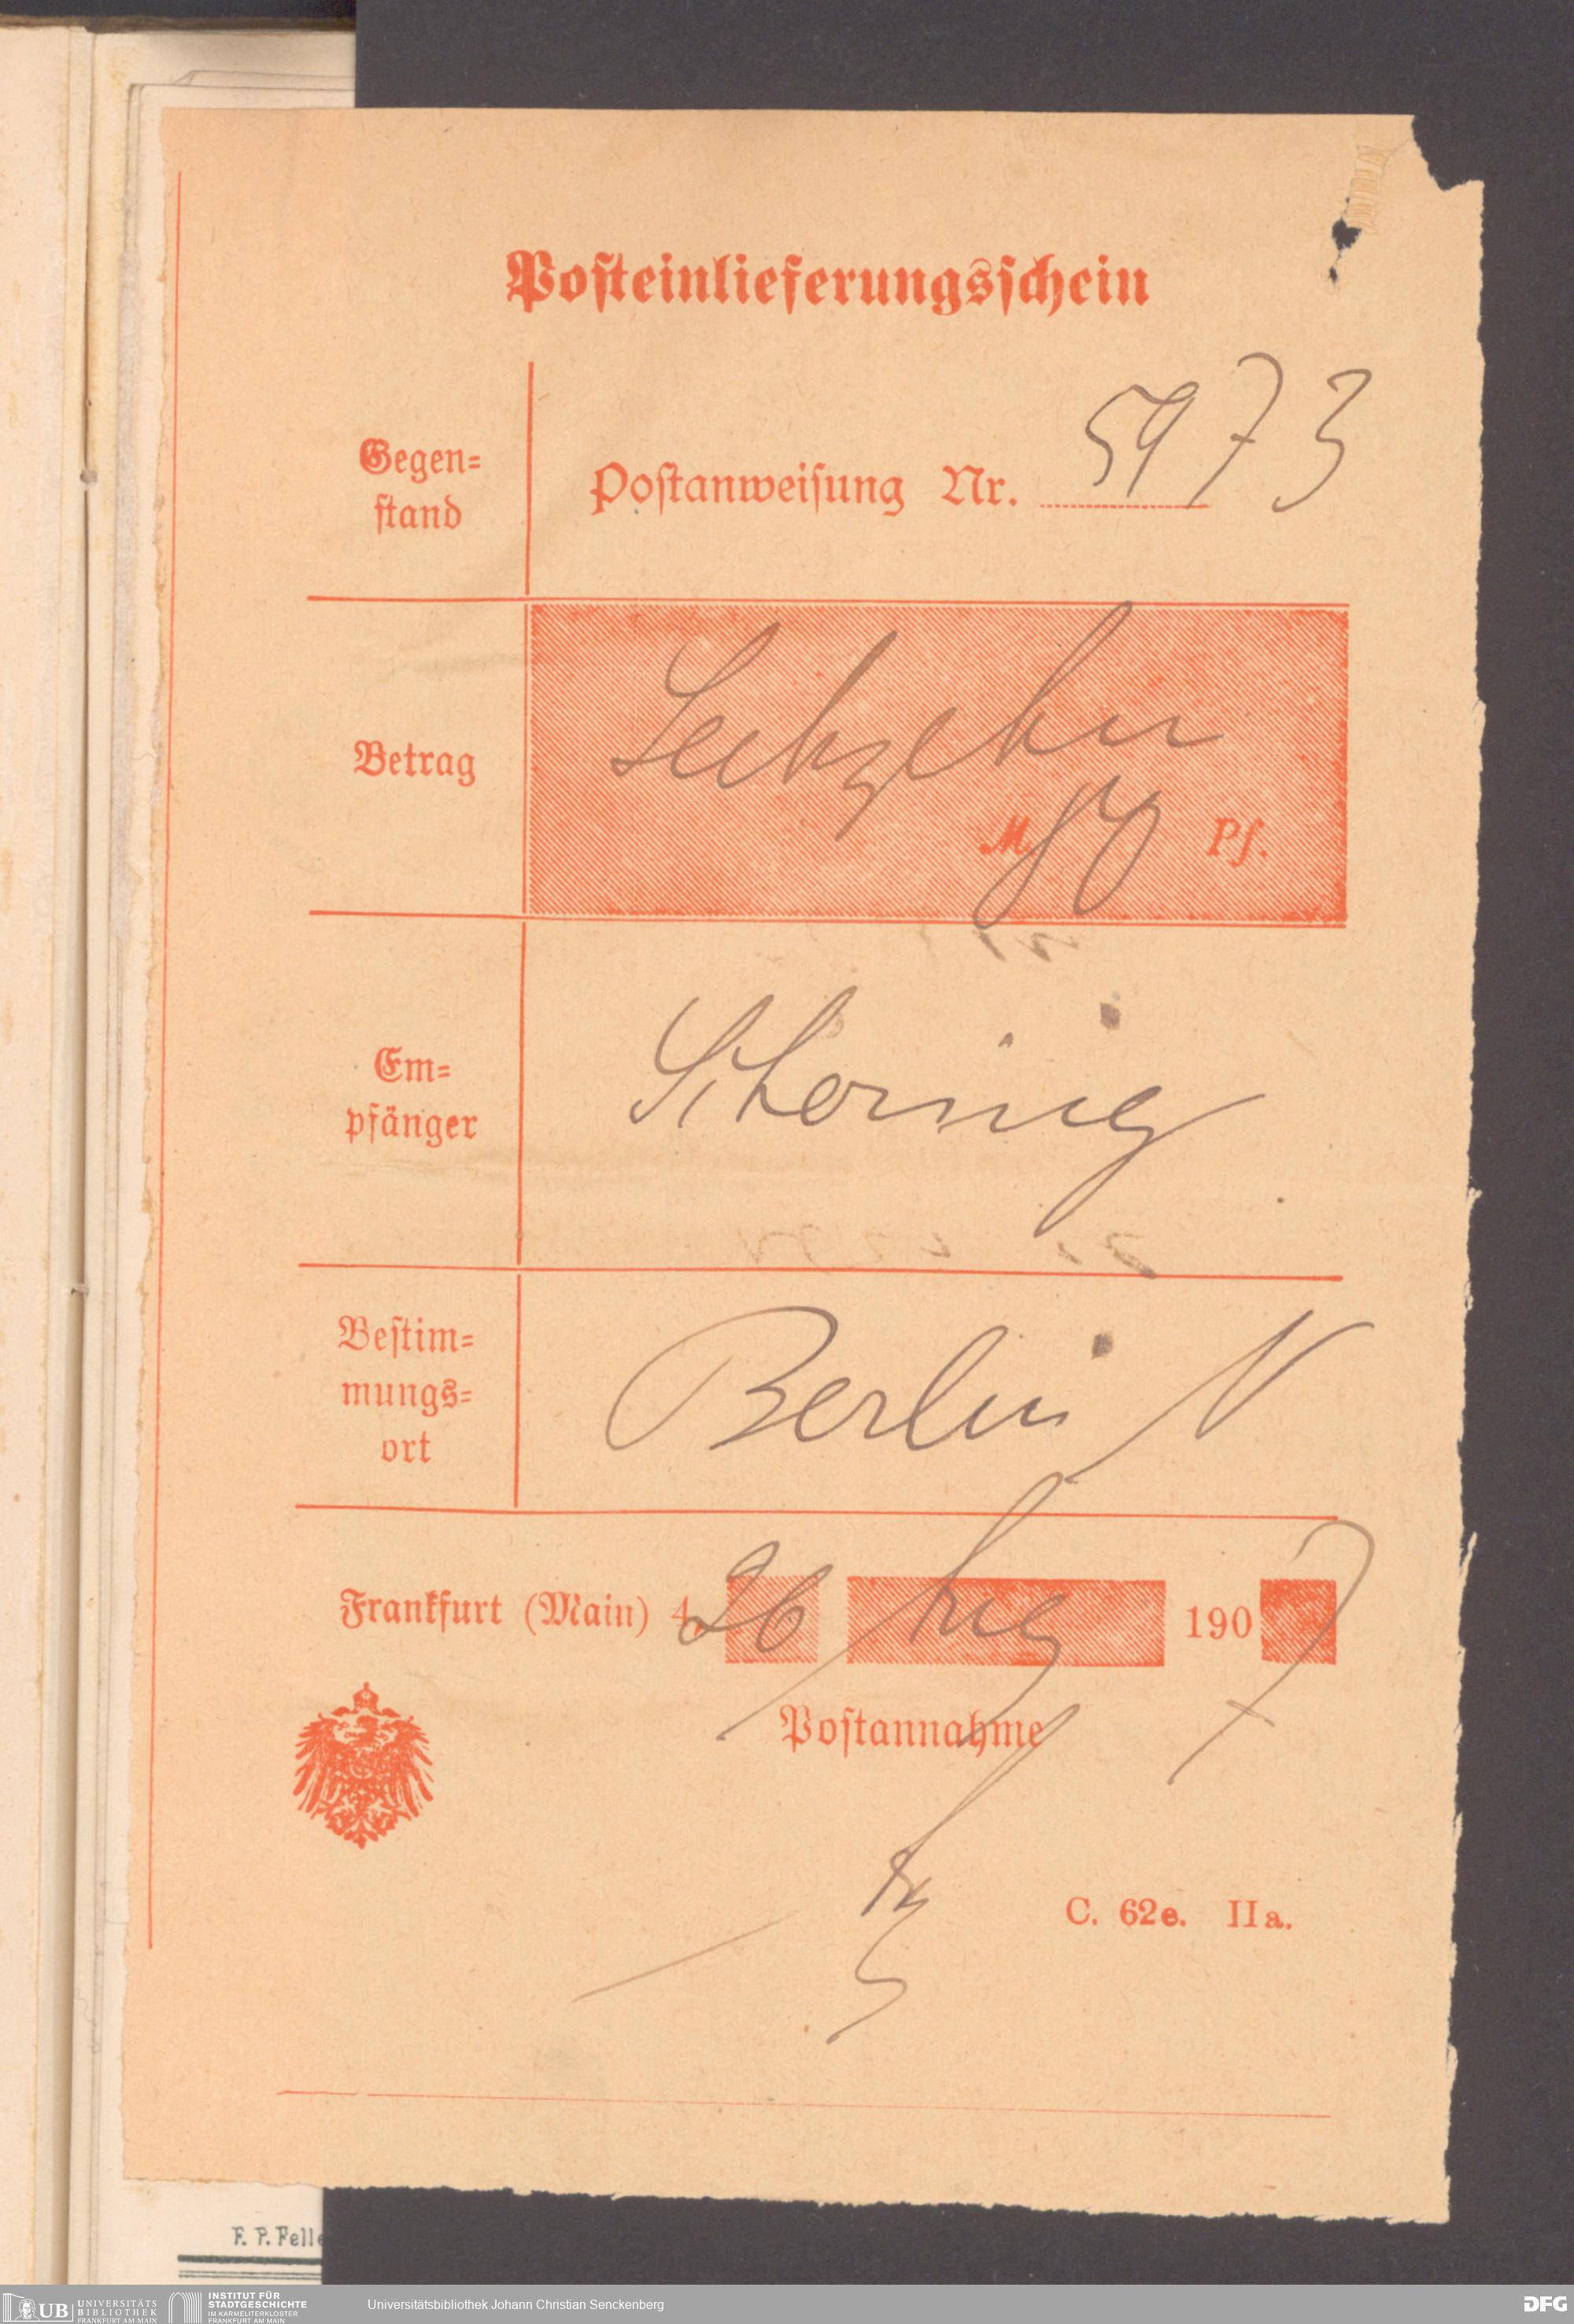 Posteinlieferungsschein
Gegen=
stand
Postanweisung Nr. 5973
Betrag
Sechzehn
M 80 Pf.
Em=
pfänger
Schering
Bestim=
mungs=
ort
Berlin N
Frankfurt (Main) 4, 26 Aug 1907
Postannahme
C. 62e. IIa.
F. P. Felle
UB UNIVERSITÄTS
BIBLIOTHEK
FRANKFURT AM MAIN
INSTITUT FÜR
STADTGESCHICHTE
IM KARMELITERKLOSTER
FRANKFURT AM MAIN
Universitätsbibliothek Johann Christian Senckenberg
DFG